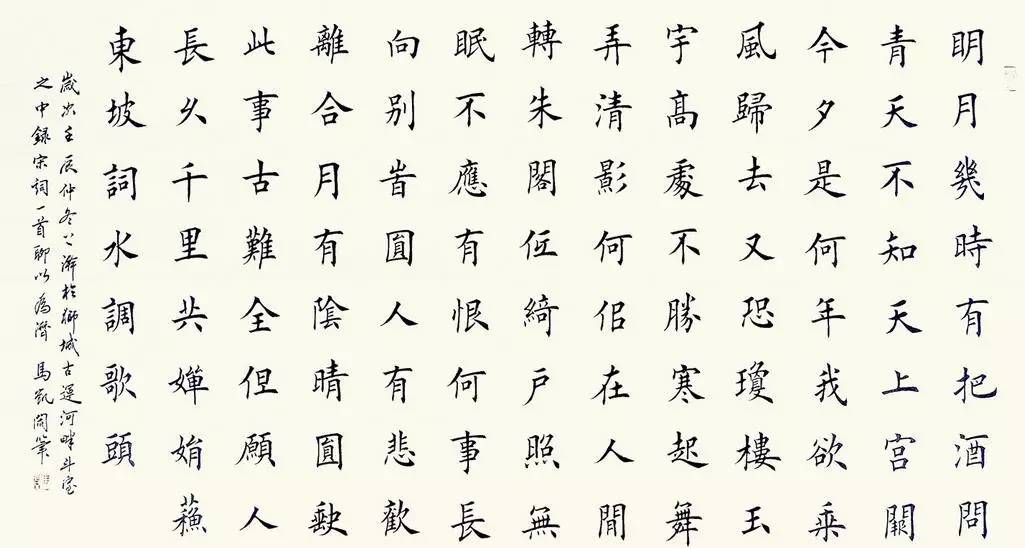 明月幾時有把酒問
青天不知天上宫闕
今夕是何年我欲乘
風歸去又恐瓊樓玉
宇高處不勝寒起舞
弄清影何佀在人間
轉朱閣低綺户照無
眠不應有恨何事長
向别旹圓人有悲歡
離合月有陰晴圓缺
此事古難全但願人
長久千里共嬋娟蘇
東坡詞水調歌頭
歲次壬辰仲冬上澣於獅城古運河畔斗室
之中録宋詞一首聊以爲 馬凱閣筆